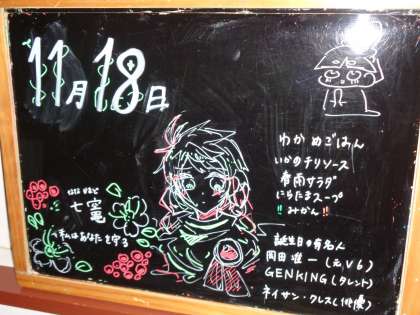 11月18日
わかめごはん
いかのチリソース
春雨サラダ
にらたまスープ
!!みかん!!
七竈
私はあなたを守る
誕生日の有名人
岡田准一(元V6)
GENKING(タレント)
ネイサン・クレス(俳優)